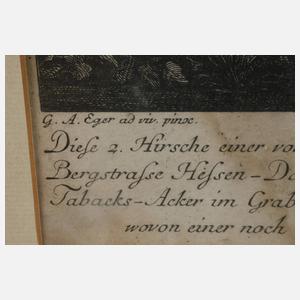 G. A. Eger ad viv. pinx.
Diese 2. Hirsche einer vo
Bergstrasse Hessen-Da
Tabacks-Acker im Grab
wovon einer noch